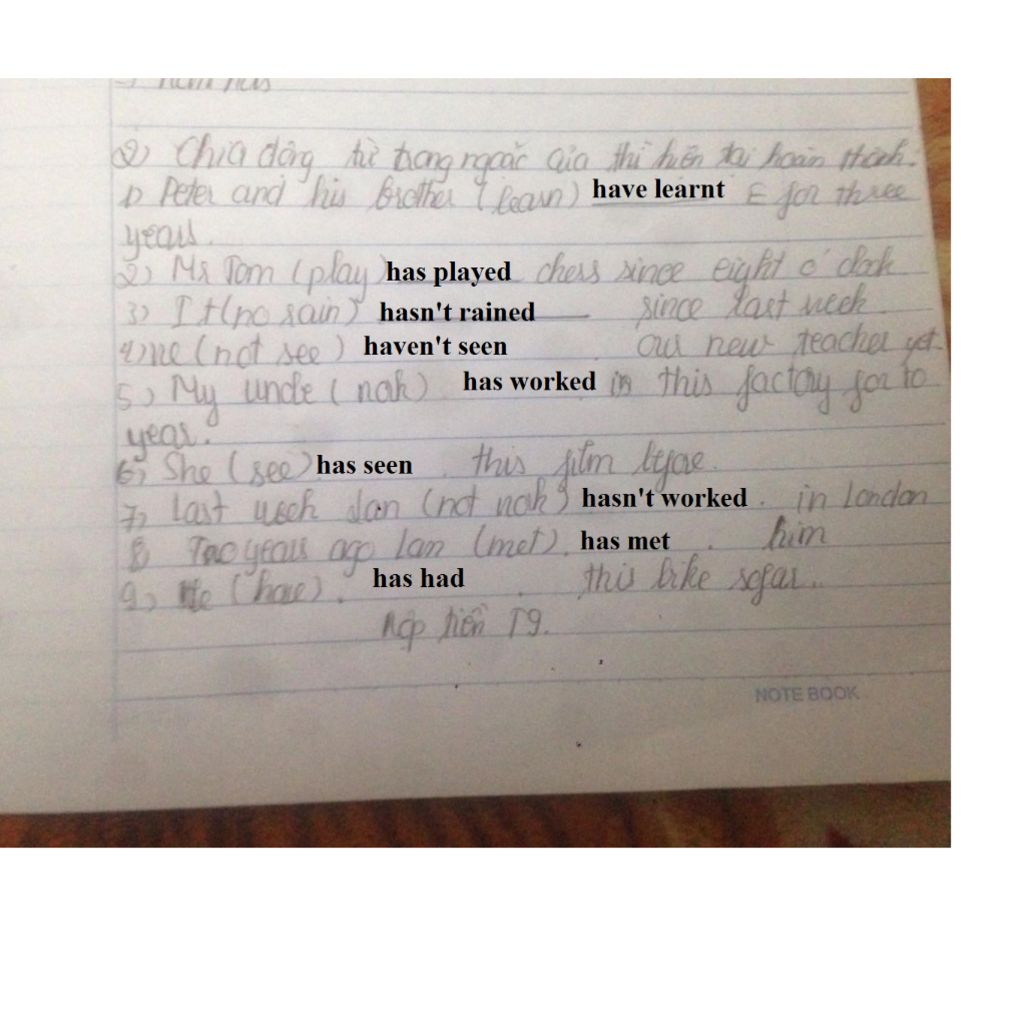 2) Chia động từ trong ngoặc của thì hiện tại hoàn thành.
1) Peter and his brother (learn) have learnt E for three
years.
2) Mr Tom (play) has played chess since eight o'clock
3) It (no rain) hasn't rained since last week.
4) we (not see) haven't seen our new teacher yet.
5) My uncle (work) has worked in this factory for 10
year.
6) She (see) has seen this film
7) Last week Lan (not work) hasn't worked in London
8 Two years ago Lan (met). has met him
9) He (have). has had this bike sofar..
Nộp tiền T9.
NOTE BOOK